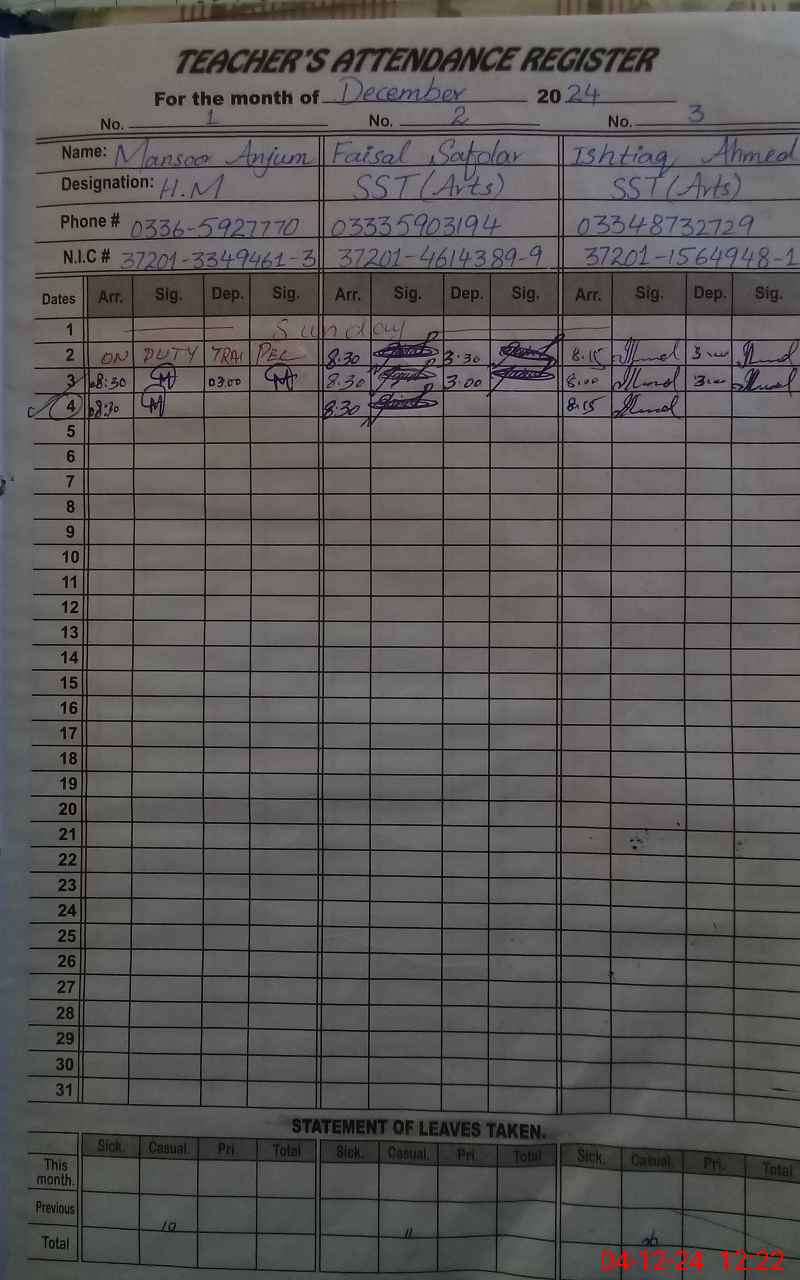 TEACHER'S ATTENDANCE REGISTER
For the month of December 2024
No. 1 No. 2 No. 3
Name: Mansoor Anjum Faisal Safdar Ishtiaq Ahmed
Designation: H.M SST (Arts) SST (Arts)
Phone # 0336-5927770 03335903194 03348732729
N.I.C # 37201-3349461-3 37201-4614389-9 37201-1564948-1
Dates Arr. Sig. Dep. Sig. Arr. Sig. Dep. Sig. Arr. Sig. Dep. Sig.
1 Sunday
2 ON DUTY 8:30 3:30 8.15
3 08:30 M 03:00 M 8.30 3.00 8.00 3
4 M 8.30 8.15
5
6
7
8
9
10
11
12
13
14
15
16
17
18
19
20
21
22
23
24
25
26
27
28
29
30
31
STATEMENT OF LEAVES TAKEN.
Sick. Casual. Pri. Total Sick. Casual. Pri. Total Sick. Casual. Pri. Total
This month.
Previous
Total 10 11 06
04-12-24 12:22